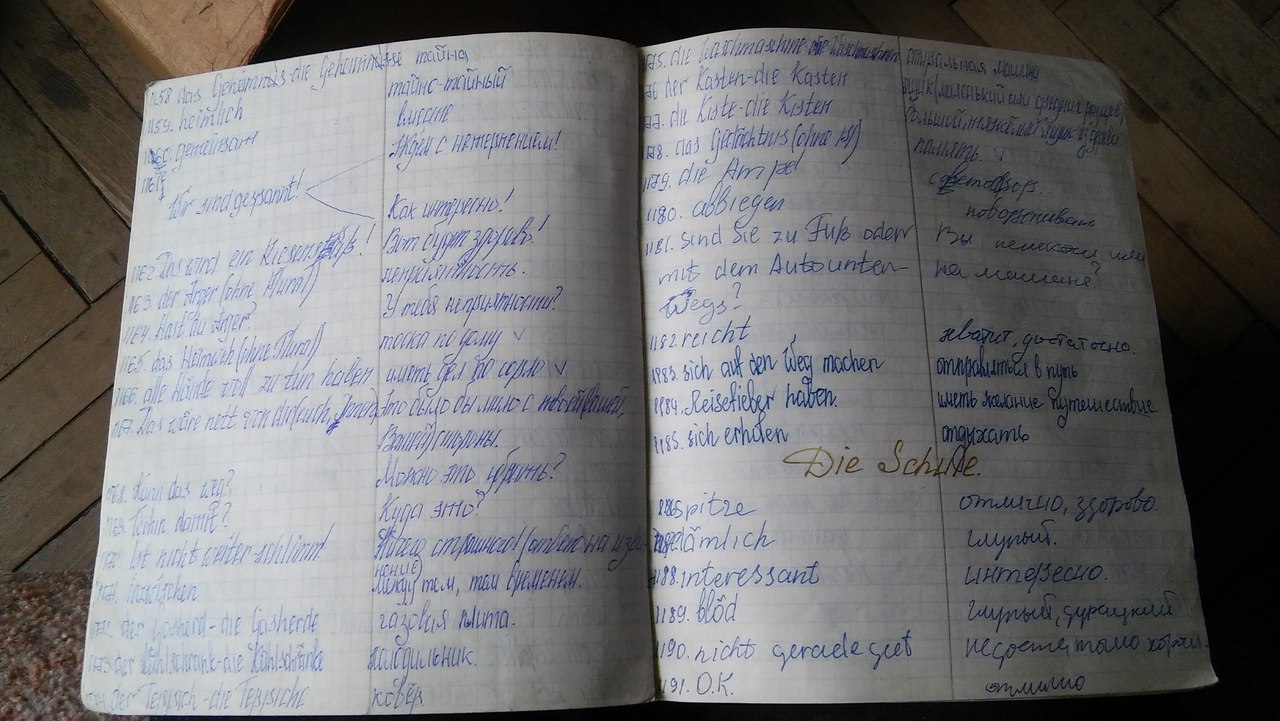 1158. das Geheimnis-die Geheimnisse тайна
1159. heimlich тайно-тайный
1160. gemeinsam вместе
1161. Ждём с нетерпением!
Wir sind gespannt!
Как интересно!
1162. Das wird ein Riesenspaß! Вот будет здорово!
1163. der Ärger (ohne Plural) неприятность.
1164. Hast du Ärger? У тебя неприятности?
1165. das Heimweh (ohne Plural) тоска по дому ✓
1166. alle Hände voll zu tun haben иметь дел по горло ✓
1167. Das wäre nett von dir/euch, Ihnen Это было бы мило с твоей/вашей,
Вашей) стороны.
1168. Kann das weg? Можно это убрать?
1169. Wohin damit? Куда это?
1170. Ist nicht weiter schlimm! Ничего страшного! (ответ на изви-
нение)
1171. inzwischen между тем, тем временем.
1172. der Gasherd-die Gasherde газовая плита.
1173. der Kühlschrank-die Kühlschränke холодильник.
1174. der Teppich-die Teppiche ковёр.
1175. die Waschmaschine-die Waschmaschinen стиральная машина
1176 der Kasten-die Kästen ящик (маленький или средних размеров)
1177. die Kiste-die Kisten большой, тяжёлый ящик
1178. das Gedächtnis (ohne Pl) память. ✓
1179. die Ampel светофор.
1180. abbiegen поворачивать
1181. Sind Sie zu Fuß oder Вы пешком или
mit dem Auto unter- на машине?
wegs?
1182. reicht хватит, достаточно.
1983. sich auf den Weg machen отправляться в путь
1984. Reisefieber haben. иметь желание путешествие
1185. sich erholen отдыхать
Die Schule.
1186 spitze отлично, здорово.
1187. dämlich глупый.
1188. interessant интересно.
1189. blöd глупый, дурацкий
1190. nicht gerade gut недостаточно
1191. O.K. отлично